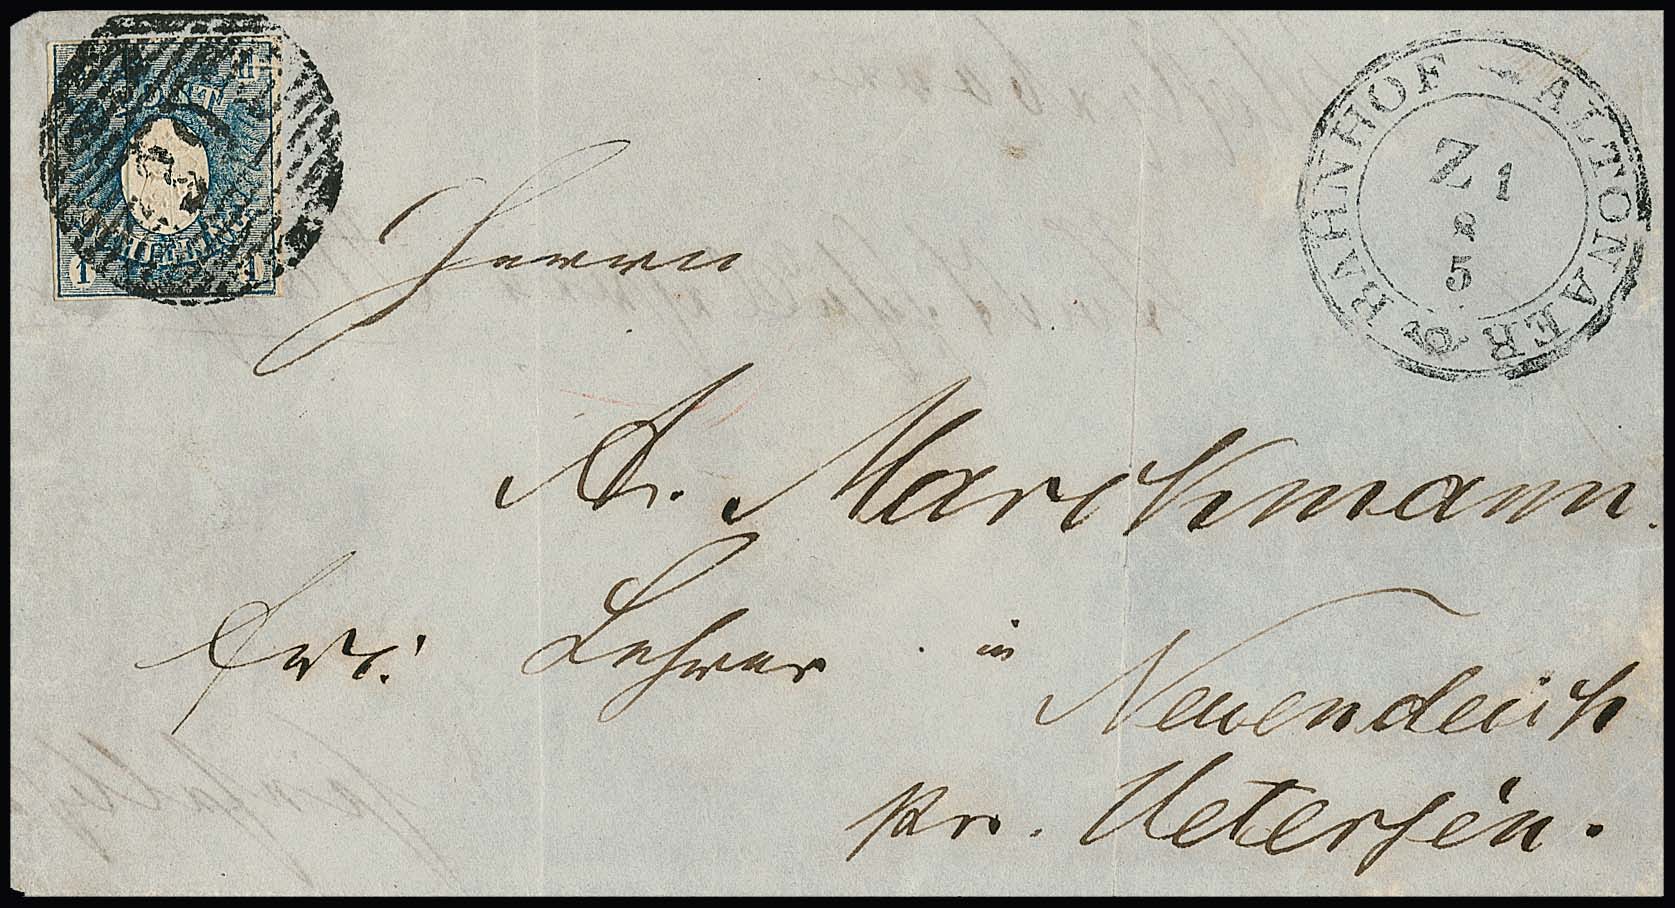 POST
SCHILLING
1 1
ALTONAER BAHNHOF
Z 1
2
5
Herrn
A. Marckmann.
Lehrer in
Neuendeich
pr. Uetersén.